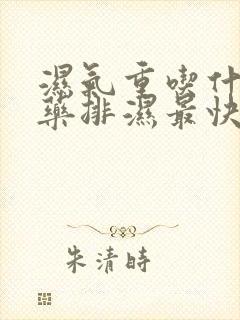 濕氣重喫什
藥排濕最快
朱清時